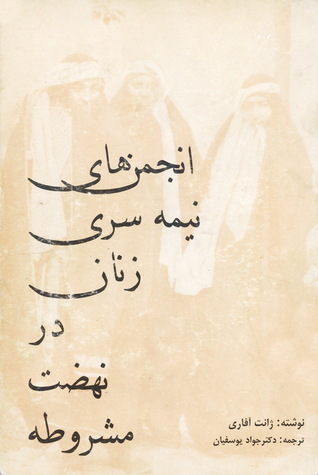 انجمن‌های
نیمه سری
زنان
در
نهضت
مشروطه
نوشته: ژانت آفاری
ترجمه: دکتر جواد یوسفیان